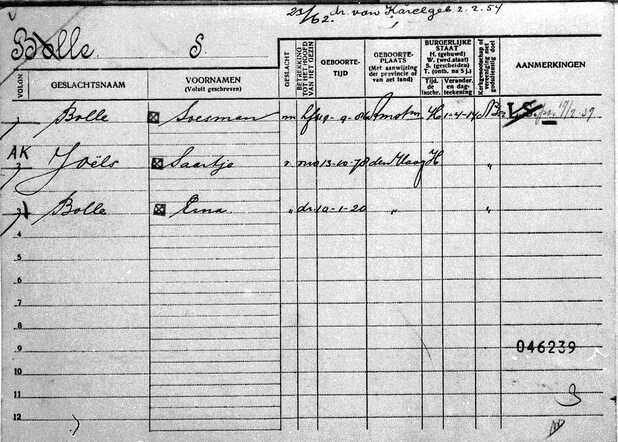 23/62. dr. van Karelgeb 2.2.54
Bolle S.
VOLGN. GESLACHTSNAAM VOORNAMEN (Voluit geschreven) GESLACHT BETREKKING TOT HET HOOFD VAN HET GEZIN GEBOORTE-TIJD GEBOORTE-PLAATS (Met aanwijzing der provincie of van het land) BURGERLIJKE STAAT H. (gehuwd) W. (wed.staat) S. (gescheiden) T. (ontb. na 5 j.) Tijd. de inschr. Verander. en dag-teekening Kerkgenootschap of vereeniging met godsdienstig doel AANMERKINGEN
1 Bolle Soesman m hfd 19-9- Amstm H 1-4-
AK
2 Joëls Saartje v 13-10-78 den Haag H "
3 Bolle Erna " dr 10-1-20 " "
4
5
6
7
8
9 046239
10
11
12